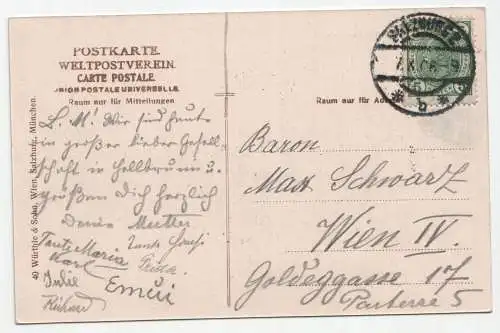 POSTKARTE.
WELTPOSTVEREIN.
CARTE POSTALE.
UNION POSTALE UNIVERSELLE.
Raum nur für Mitteilungen
L. M! Wir sind heute
in großer lieber Gesell-
schaft in Hellbrunn u.
grüßen Dich herzlich
Deine Mutter
Tante Maria
Karl
Frida
Emmi
Richard
Würthle & Sohn, Wien, Salzburg, München.
SALZBURG 2
Raum nur für
Baron
Max Schwarz
Wien IV.
Goldeggasse 17
Parterre 5